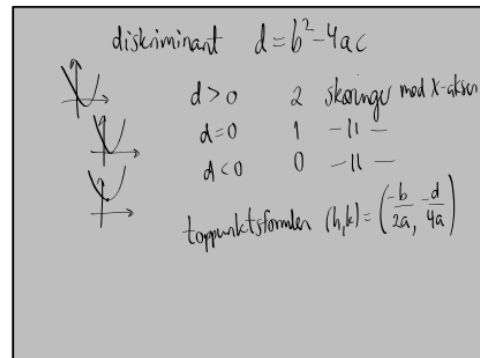 diskriminant d = b² - 4ac
d > 0 2 skæringer med x-aksen
d = 0 1 -11-
d < 0 0 -11-
toppunktsformlen (h,k) = (-b/2a, -d/4a)